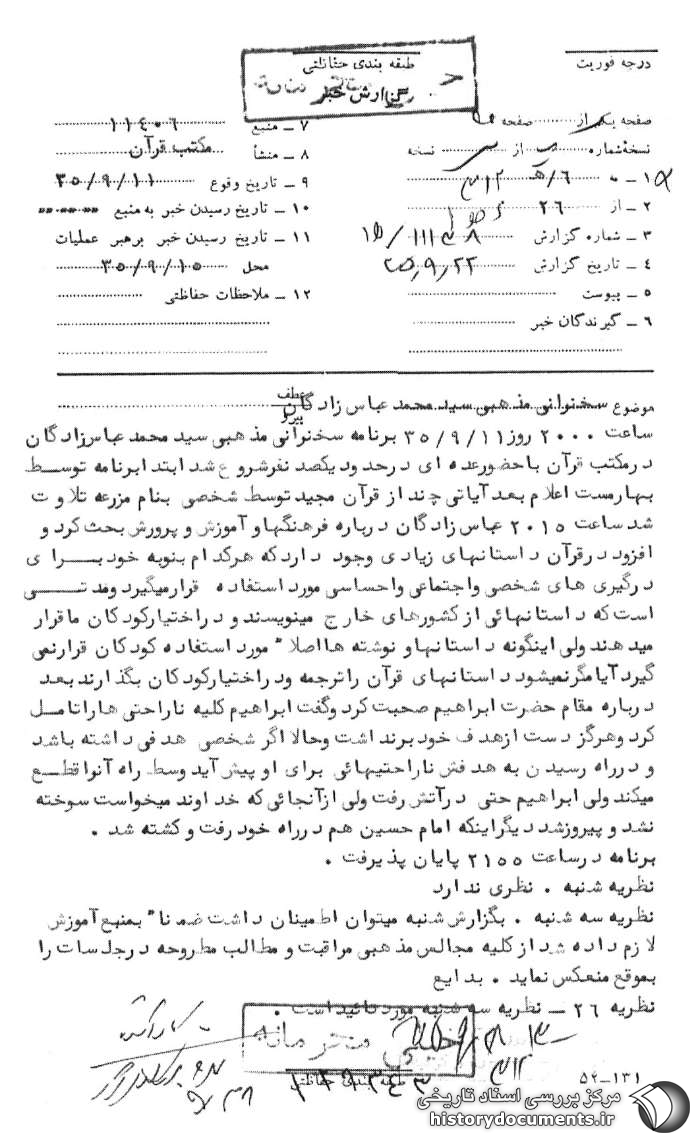 درجه فوریت
طبقه بندی حفاظتی
گزارش خبر
صفحه یک از صفحه
نسخهٔ شماره از نسخه
۱ – به ۳۱۲ ه‍/۶
۲ – از ۲۶
۳ – شماره گزارش
۴ – تاریخ گزارش ۳۵٫۹٫۲۲
۵ – پیوست
۶ – گیرندگان خبر
۷ – منبع ۱۱۴۰۶
۸ – منشأ مکتب قرآن
۹ – تاریخ وقوع ۳۵/۹/۱۱
۱۰ – تاریخ رسیدن خبر به منبع
۱۱ – تاریخ رسیدن خبر برهبر عملیات
محل ۳۵/۹/۱۵
۱۲ – ملاحظات حفاظتی
موضوع سخنرانی مذهبی سید محمد عباس زادگان
عطف
پیرو
ساعت ۲۰۰۰ روز ۳۵/۹/۱۱ برنامه سخنرانی مذهبی سید محمد عباس‌زادگان
در مکتب قرآن با حضور عده ای در حدود یکصد نفر شروع شد ابتدا برنامه توسط
بهارمست اعلام بعد آیاتی چند از قرآن مجید توسط شخصی بنام مزرعه تلاوت
شد ساعت ۲۰۱۵ عباس زادگان درباره فرهنگها و آموزش و پرورش بحث کرد و
افزود در قرآن داستانهای زیادی وجود دارد که هرکدام بنوبه خود برای
درگیری های شخصی و اجتماعی و احساسی مورد استفاده قرار میگیرد و مدتی
است که داستانهائی از کشورهای خارج مینویسند و در اختیار کودکان ما قرار
میدهند ولی اینگونه داستانها و نوشته ها اصلا" مورد استفاده کودکان قرار نمی
گیرد آیا مگر نمیشود داستانهای قرآن را ترجمه و در اختیار کودکان بگذارند بعد
درباره مقام حضرت ابراهیم صحبت کرد و گفت ابراهیم کلیه ناراحتی ها را تامل
کرد و هرگز دست از هدف خود برنداشت و حالا اگر شخصی هدفی داشته باشد
و در راه رسیدن به هدفش ناراحتیهائی برای او پیش آید وسط راه آنرا قطع
میکند ولی ابراهیم حتی در آتش رفت ولی از آنجائی که خداوند میخواست سوخته
نشد و پیروز شد دیگر اینکه امام حسین هم در راه خود رفت و کشته شد .
برنامه در ساعت ۲۱۵۵ پایان پذیرفت .
نظریه شنبه . نظری ندارد
نظریه سه شنبه . بگزارش شنبه میتوان اطمینان داشت ضمنا" بمنبع آموزش
لازم داده شد از کلیه مجالس مذهبی مراقبت و مطالب مطروحه در جلسات را
بموقع منعکس نماید . بدایع
نظریه ۲۶ – نظریه سه شنبه مورد تائید است .
خیلی محرمانه
طبقه بندی حفاظتی
۵۲–۱۳۱
مرکز بررسی اسناد تاریخی
historydocuments.ir